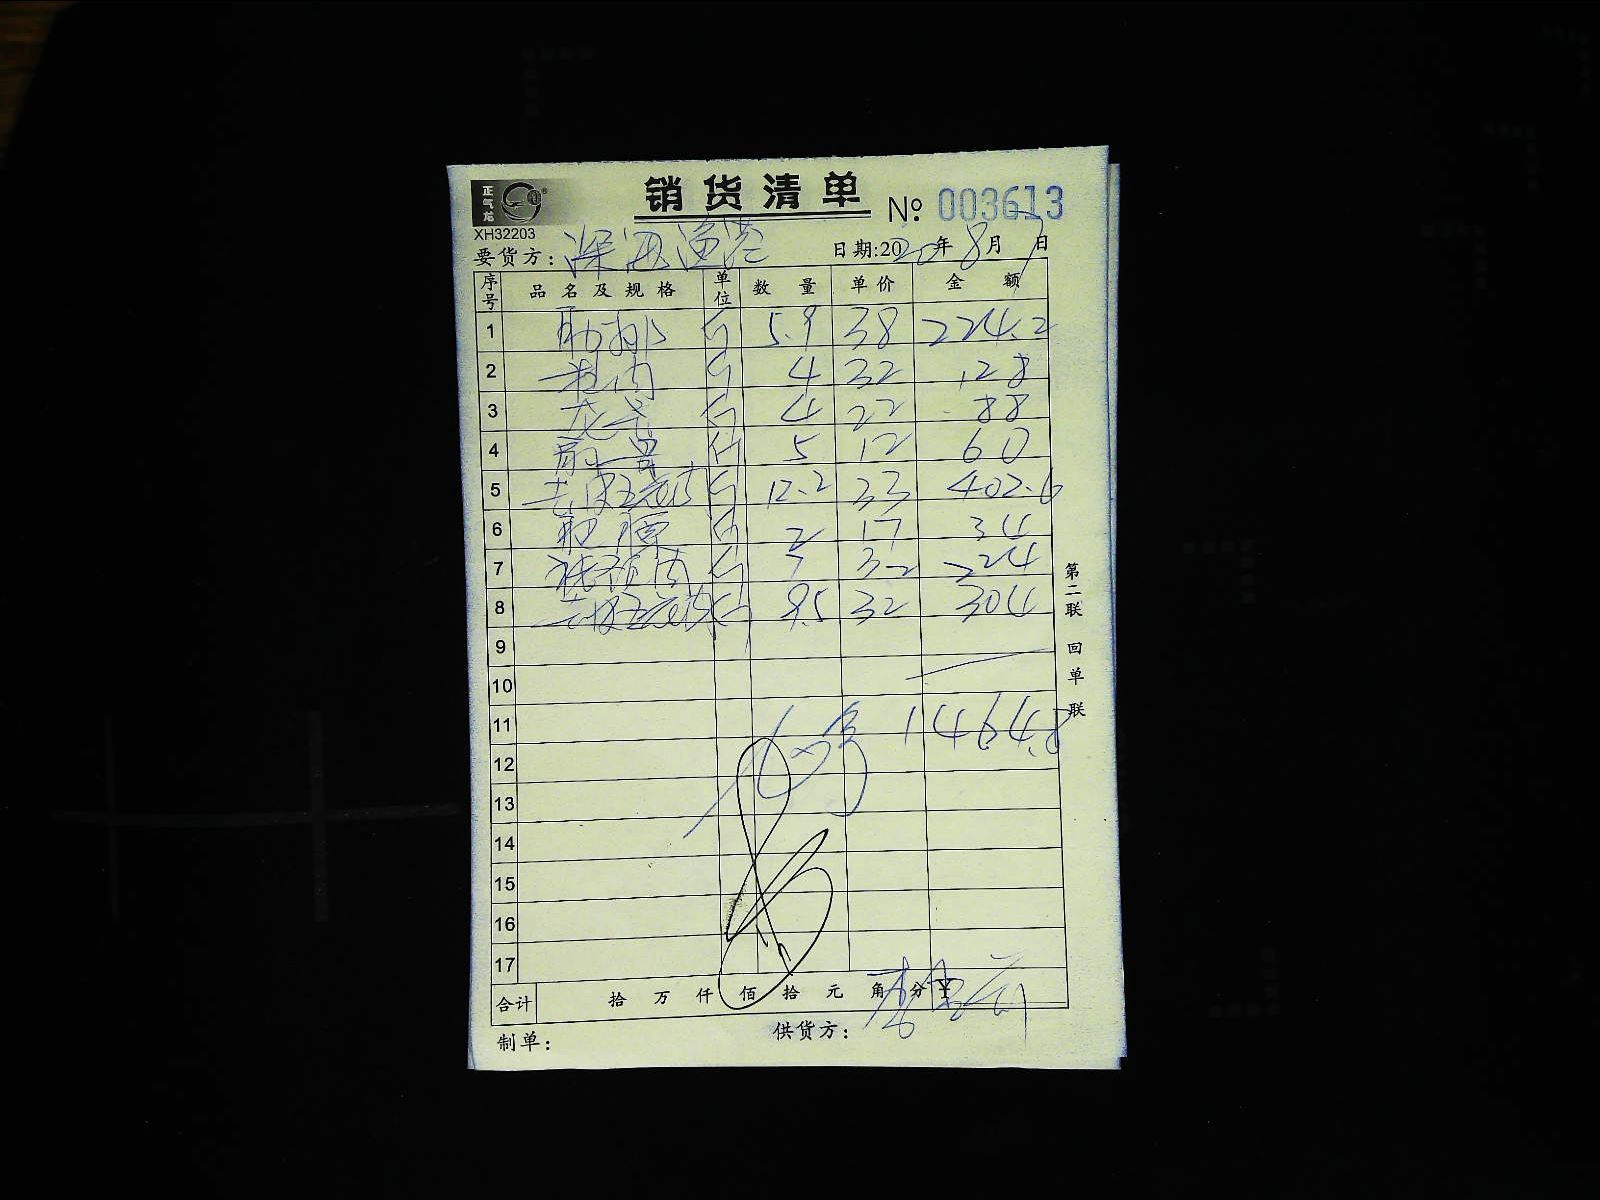 正气龙
销货清单
№ 003613
XH32203
要货方: 深海渔港 日期:2020年8月7日
序号 品名及规格 单位 数量 单价 金额
1 肋排 斤 5.9 38 224.2
2 斤 4 32 128
3 斤 4 22 88
4 斤 5 12 60
5 去皮五花肉 斤 12.2 33 402.6
6 斤 2 17 34
7 肉 斤 7 32 224
8 去皮五花肉 斤 9.5 32 304
9
10
11 1464.8
12
13
14
15
16
17
合计 拾 万 仟 佰 拾 元 角 分 ¥
制单: 供货方:
第二联 回单联